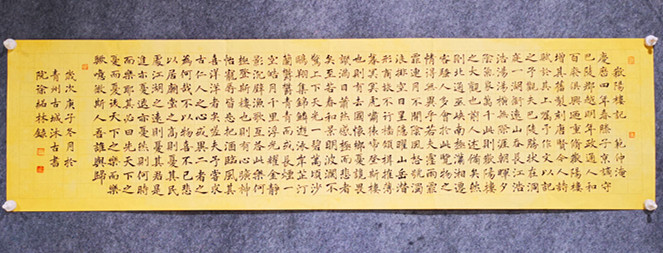 嶽陽樓記 范仲淹
慶曆四年春滕子京謫守
巴陵郡越明年政通人和
百廢俱興乃重修嶽陽樓
增其舊制刻唐賢今人詩
賦於其上屬予作文以記
之予觀夫巴陵勝狀在洞
庭一湖銜遠山吞長江浩
浩湯湯橫無際涯朝暉夕
陰氣象萬千此則嶽陽樓
之大觀也前人之述備矣然
則北通巫峽南極瀟湘遷
客騷人多會於此覽物之
情得無異乎若夫霪雨霏
霏連月不開陰風怒號濁
浪排空日星隱曜山岳潛
形商旅不行檣傾楫摧薄
暮冥冥虎嘯猿啼登斯樓
也則有去國懷鄉憂讒畏
譏滿目蕭然感極而悲者
矣至若春和景明波瀾不
驚上下天光一碧萬頃沙
鷗翔集錦鱗游泳岸芷汀
蘭鬱鬱青青而或長煙一
空皓月千里浮光耀金靜
影沉璧漁歌互答此樂何
極登斯樓也則有心曠神
怡寵辱皆忘把酒臨風其
喜洋洋者矣嗟夫予嘗求
古仁人之心或異二者之
為何哉不以物喜不以己悲
居廟堂之高則憂其民
處江湖之遠則憂其君是
進亦憂退亦憂然則何時
而樂耶其必曰先天下之
憂而憂後天下之樂而樂
歟噫微斯人吾誰與歸
歲次庚子冬月於
青州古城沐古書
院徐紹林錄